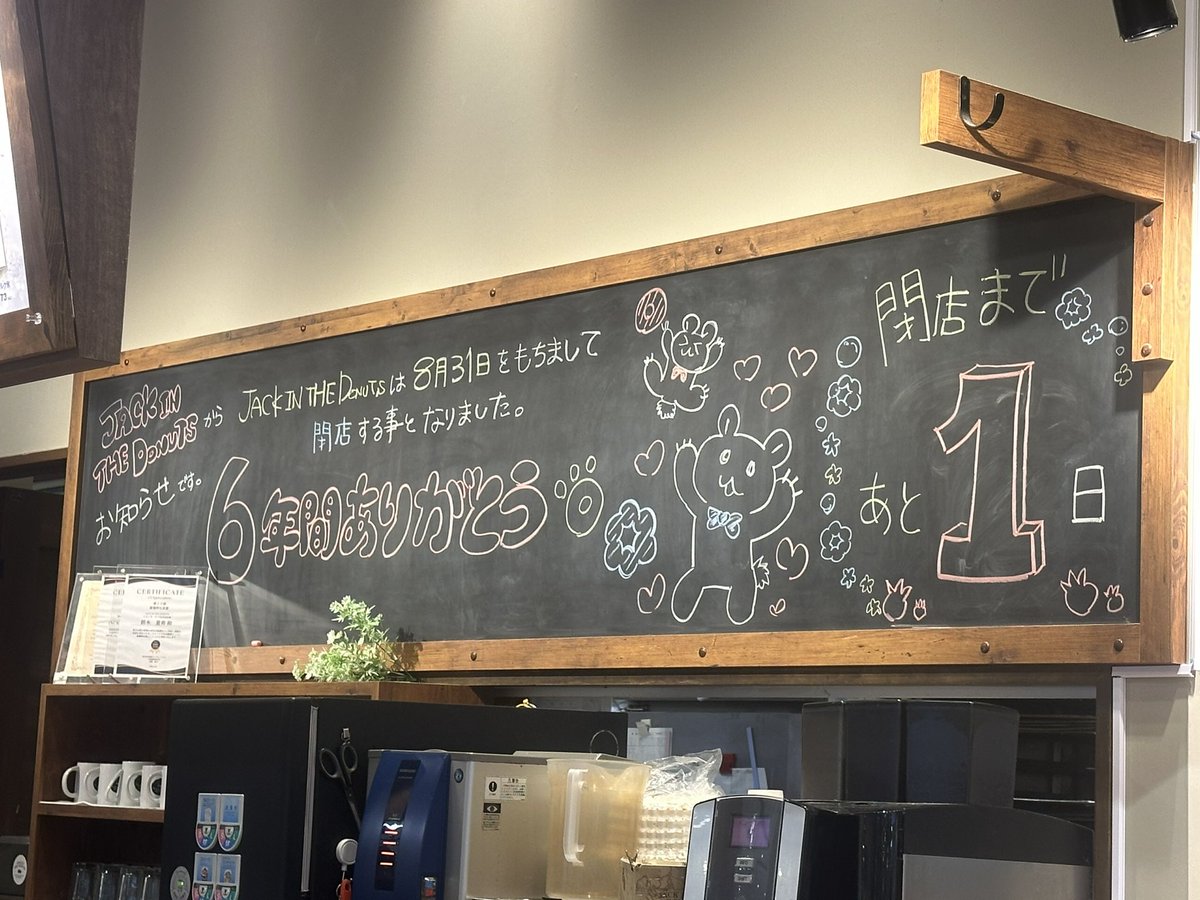 JACK IN
THE DONUTS から
お知らせです。
JACK IN THE DONUTSは 8月31日をもちまして
閉店する事となりました。
6年間ありがとう
閉店まで
あと 1 日
CERTIFICATE